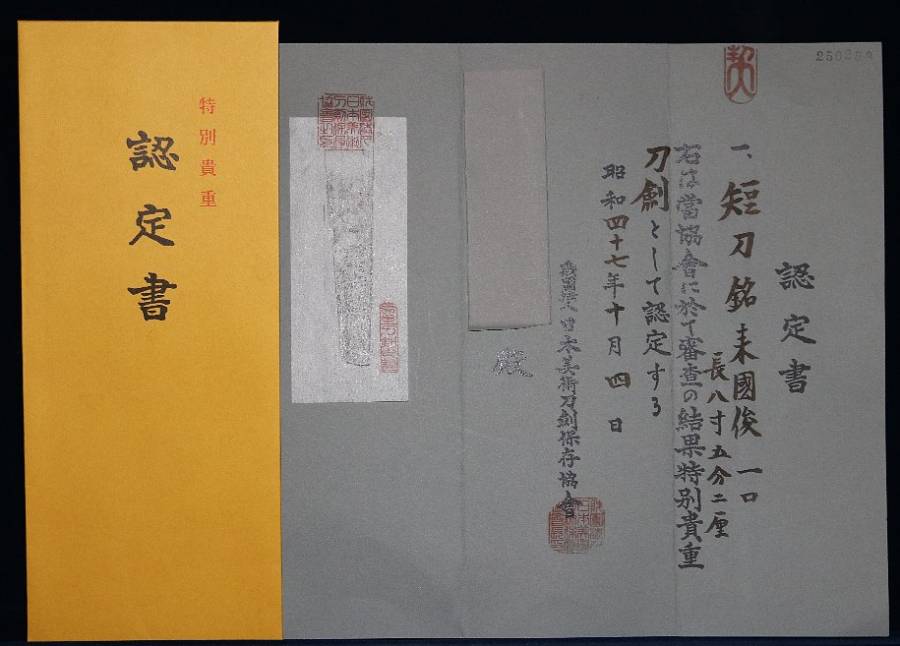 認定書
一、短刀 銘 来國俊 一口
長八寸五分二厘
右は當協會に於て審査の結果特別貴重
刀劍として認定する
昭和四十七年十月四日
財団法人日本美術刀劍保存協會
殿
特別貴重
認定書